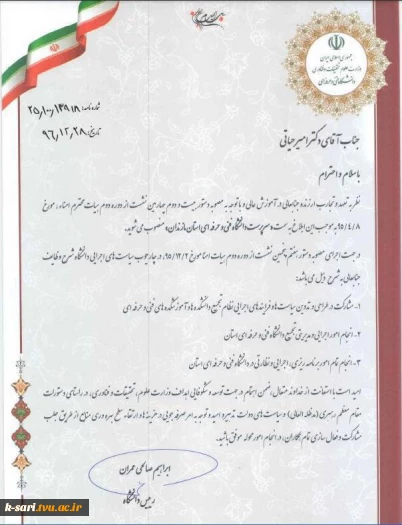 جمهوری اسلامی ایران
وزارت علوم، تحقیقات و فناوری
دانشگاه فنی و حرفه‌ای
شماره نامه: ۲۵/۱۰۰/۱۳۹۱۸
تاریخ: ۹۶/۱۲/۲۸
جناب آقای دکتر امیر حیاتی
با سلام و احترام
نظر به تعهد و تجارب ارزنده جنابعالی در آموزش عالی و با توجه به مصوبه دستور بیست و دوم چهارمین نشست از دوره دوم هیات محترم امناء، مورخ
۹۵/۴/۸ به موجب این ابلاغ به سمت «سرپرست دانشگاه فنی و حرفه ای استان مازندران» منصوب می شوید.
در جهت اجرای مصوبه دستور هفتم پنجمین نشست از دوره دوم هیات امنا مورخ ۹۵/۱۲/۲ در چارچوب سیاست های اجرایی دانشگاه شرح وظایف
جنابعالی به شرح ذیل می باشد:
۱- مشارکت در طراحی و تدوین سیاست ها و فرایندهای اجرایی نظام تجمیع دانشکده ها و آموزشکده های فنی و حرفه ای
۲- انجام امور اجرایی و مدیریتی تجمیع دانشکده های فنی و حرفه ای استان
۳- انجام تمام امور برنامه ریزی، اجرایی و نظارتی در دانشکده فنی و حرفه ای استان
امید است با استعانت از خداوند متعال، ضمن اهتمام در جهت توسعه و شکوفایی اهداف وزارت علوم، تحقیقات و فناوری، در راستای دستورات
مقام معظم رهبری (مدظله العالی) و سیاست های دولت تدبیر و امید و توجه به امر صرفه جویی در هزینه ها و ارتقاء سطح بهره وری منابع از طریق جلب
مشارکت و فعال سازی تمام همکاران، در انجام امور محوله موفق باشید.
ابراهیم صالحی عمران
رییس دانشگاه
k-sari.tvu.ac.ir